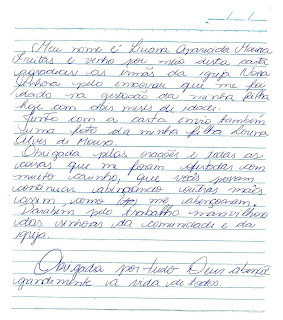 Meu nome é Luana Aparecida Moura
Freitas e venho por meio desta carta
agradecer as irmãs da igreja Nova
pelo enxoval que me foi
dado na gestação da minha filha
hoje com dois meses de idade.
Junto com a carta envio também
uma foto da minha filha
Alves de Moura.
Obrigada pelas orações e todas as
coisas que me foram ofertadas com
muito carinho, que vocês possam
continuar abençoando outras mães
assim como me abençoaram.
Parabéns pelo trabalho maravilhoso
das senhoras da comunidade e da
igreja.
Obrigada por tudo Deus abençoe
grandimente a vida de todos.